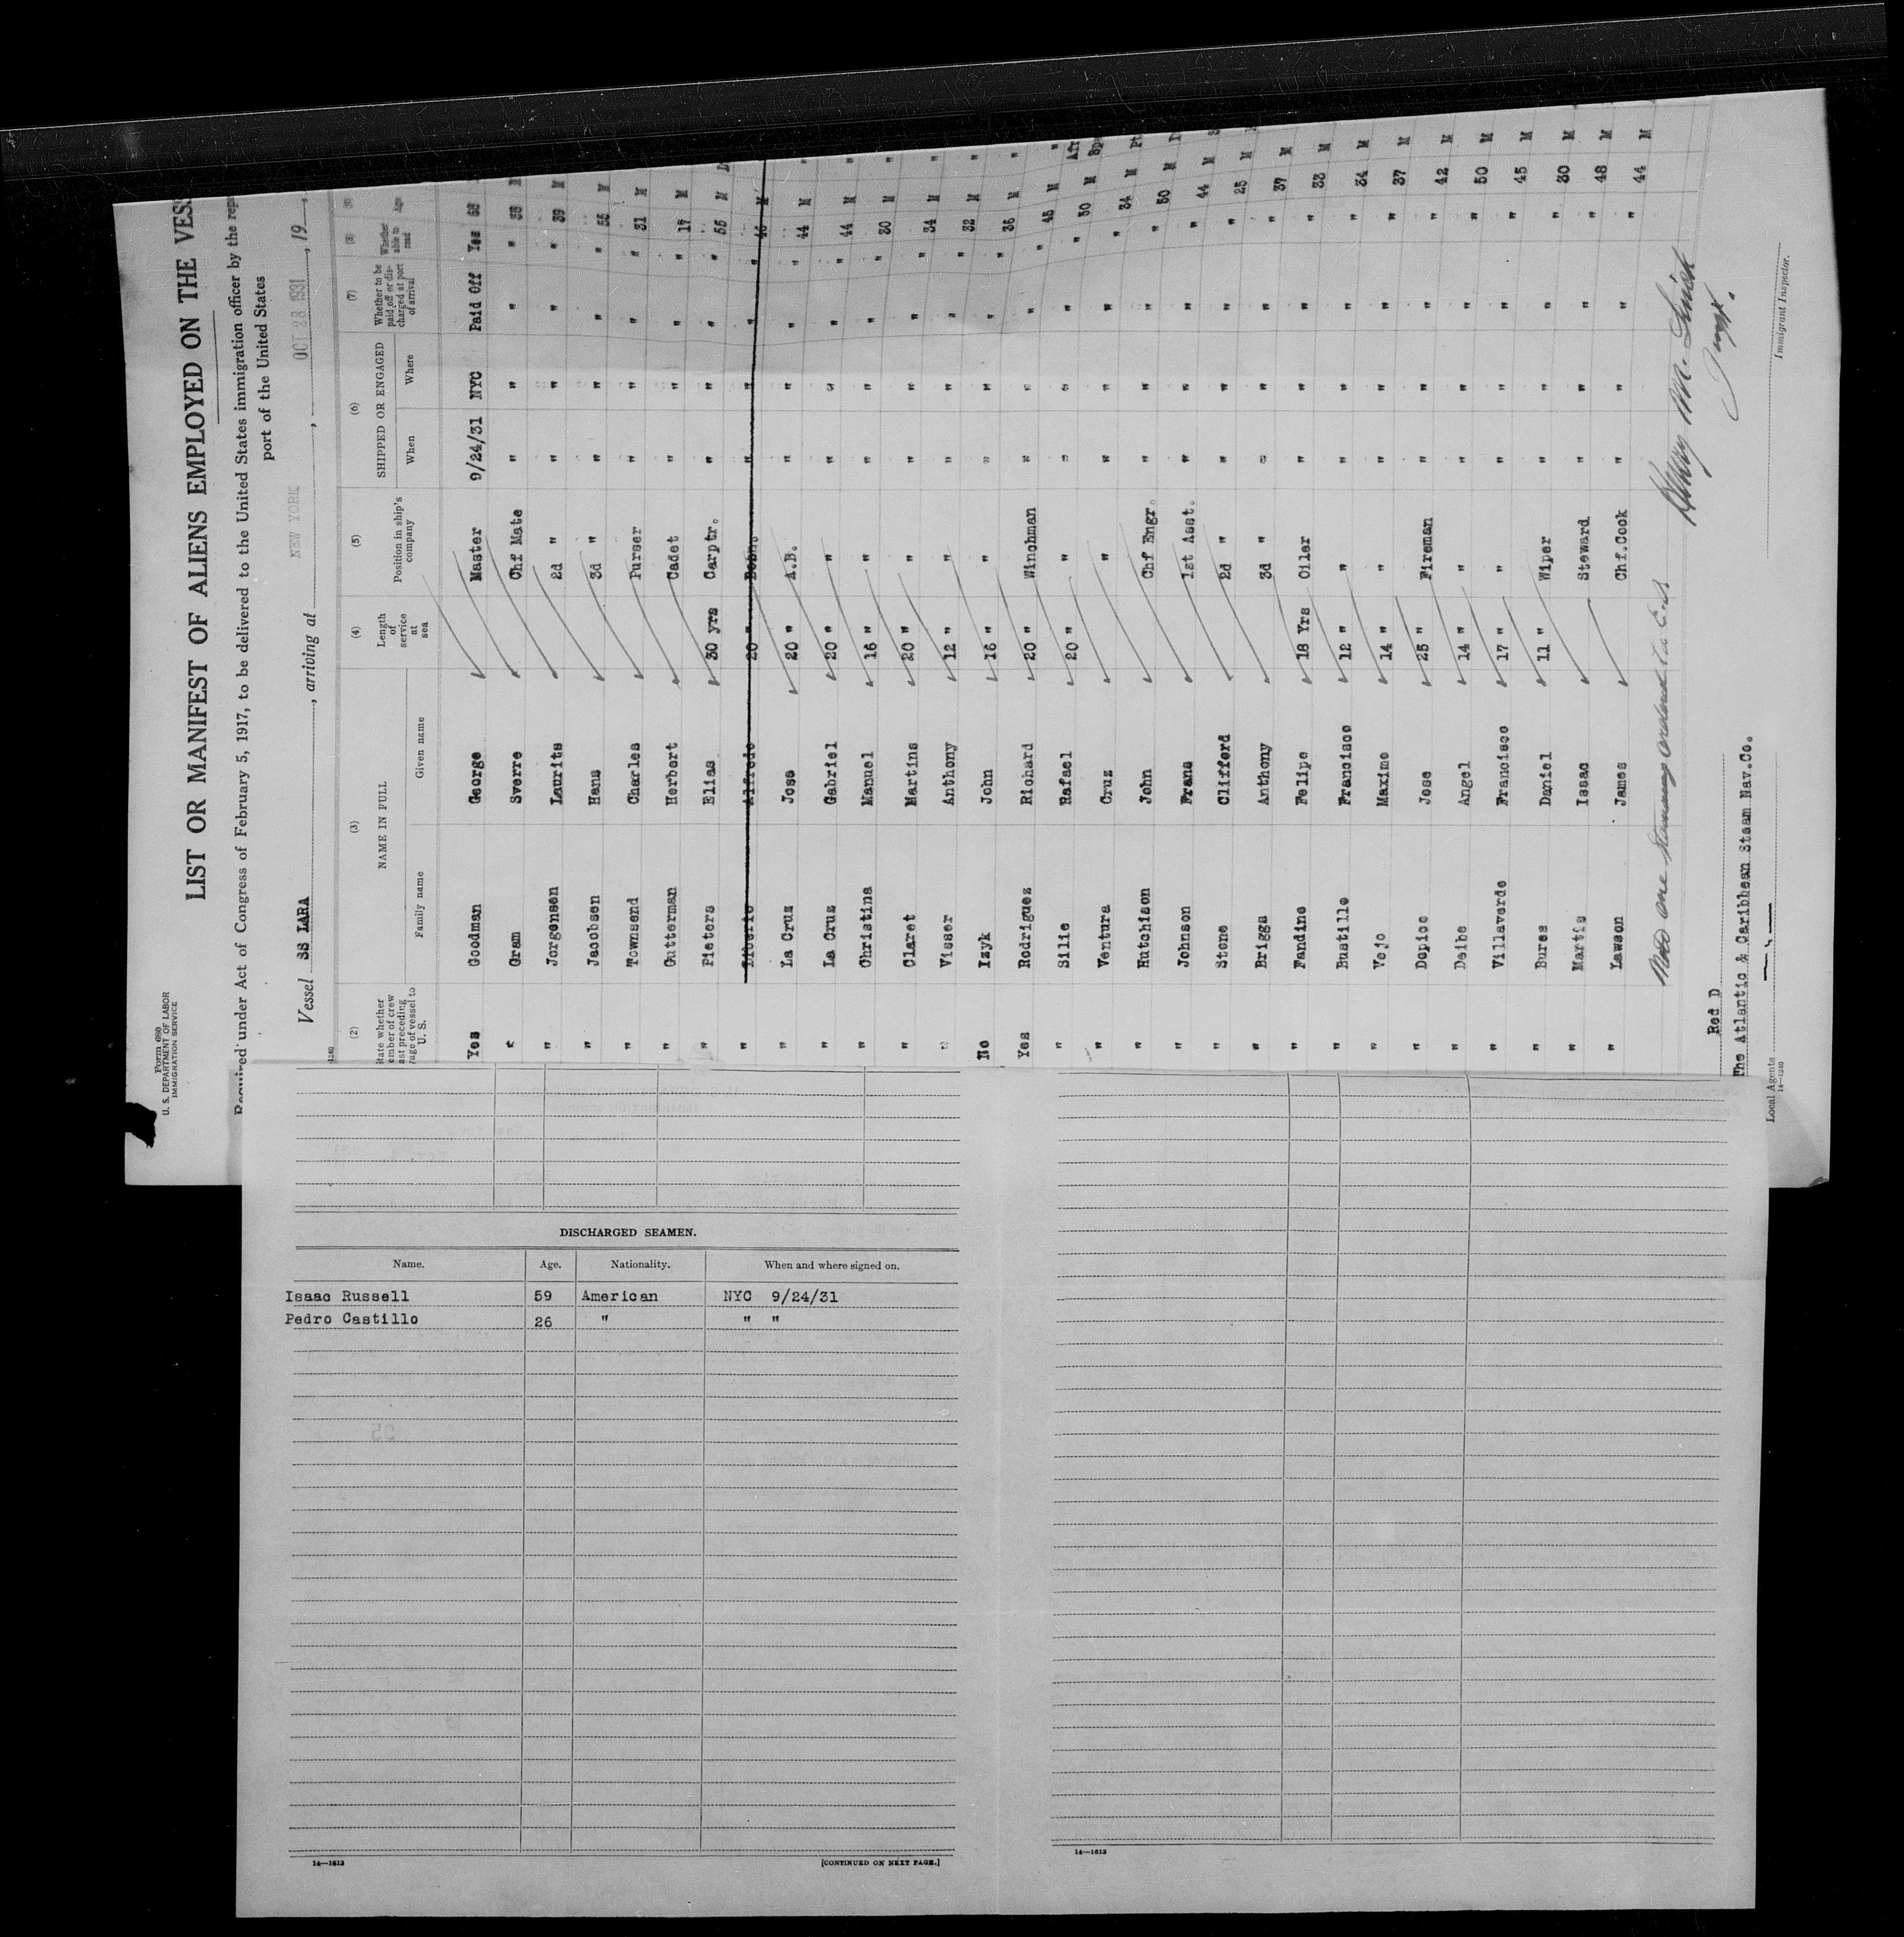 Form 680
U. S. DEPARTMENT OF LABOR
IMMIGRATION SERVICE
LIST OR MANIFEST OF ALIENS EMPLOYED ON THE VES
Required under Act of Congress of February 5, 1917, to be delivered to the United States immigration officer by the rep
port of the United States
Vessel SS LARA, arriving at NEW YORK, OCT 28 1931, 19
(2) (3) (4) (5) (6) (7) (8)
tate whether ember of crew ast preceding yage of vessel to U. S. NAME IN FULL Family name Given name Length of service at sea Position in ship's company SHIPPED OR ENGAGED When Where Whether to be paid off or discharged at port of arrival Whether able to read Age
Yes Goodman George Master 9/24/31 NYC Paid Off Yes
" Gram Sverre Chf Mate " " " " 38 M
" Jorgensen Laurits 2d " " " " " 39 M
" Jacobsen Hans 3d " " " " " 55 M
" Townsend Charles Purser " " " " 31 M
" Gutterman Herbert Cadet " " " " 17 M
" Pieters Elias 30 yrs Carptr. " " " " 55 M
" Alfredo 20 " " " " " 46 M
" La Cruz Jose 20 " A.B. " " " " 44 M "
" La Cruz Gabriel 20 " " " " " " 44 M "
" Christina Manuel 16 " " " " " " 30 M "
" Claret Martins 20 " " " " " " 34 M "
" Visser Anthony 12 " " " " " " 32 M "
No Izyk John 16 " " " " " " 36 M "
Yes Rodriguez Richard 20 " Winchman " " " " 45 M "
" Silie Rafael 20 " " " " " " 30 M
" Ventura Cruz " " " " " 34 M
" Hutchison John Chf Engr. " " " " 50 M
" Johnson Frans 1st Asst. " " " " 44 M
" Stone Clifferd 2d " " " " " 25 M
" Briggs Anthony 3d " " " " " 37 M
" Fandino Felipe 18 Yrs Oiler " " " " 33 M
" Bustillo Francisco 12 " " " " " " 34 M
" Vejo Maximo 14 " " " " " " 37 M
" Dopico Jose 25 " Fireman " " " " 42 M
" Deibe Angel 14 " " " " " " 50 M
" Villaverde Francisco 17 " " " " " " 45 M
" Bures Daniel 11 " Wiper " " " " 30 M
" Martis Isaac Steward " " " " 48 M
" Lawson James Chf.Cook " " " " 44 M
Red D
The Atlantic & Caribbean Steam Nav.Co.
Local Agents
14—1240
Immigrant Inspector.
DISCHARGED SEAMEN.
Name. Age. Nationality. When and where signed on.
Isaac Russell 59 American NYC 9/24/31
Pedro Castillo 26 " " "
14—1613 [CONTINUED ON NEXT PAGE.]
14—1613